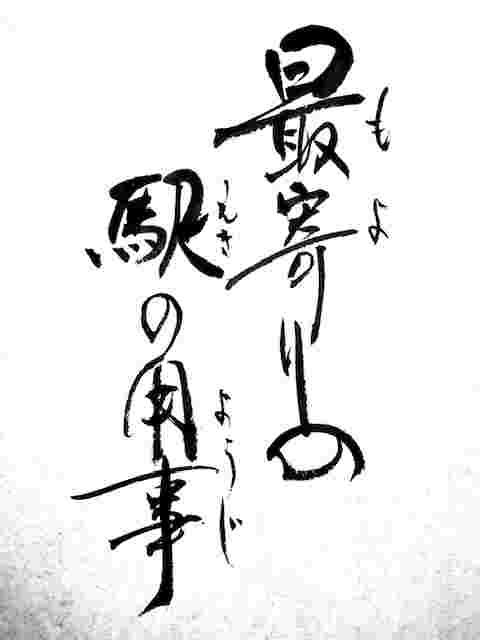 最寄りの
もよ
駅の用事
えき
ようじ